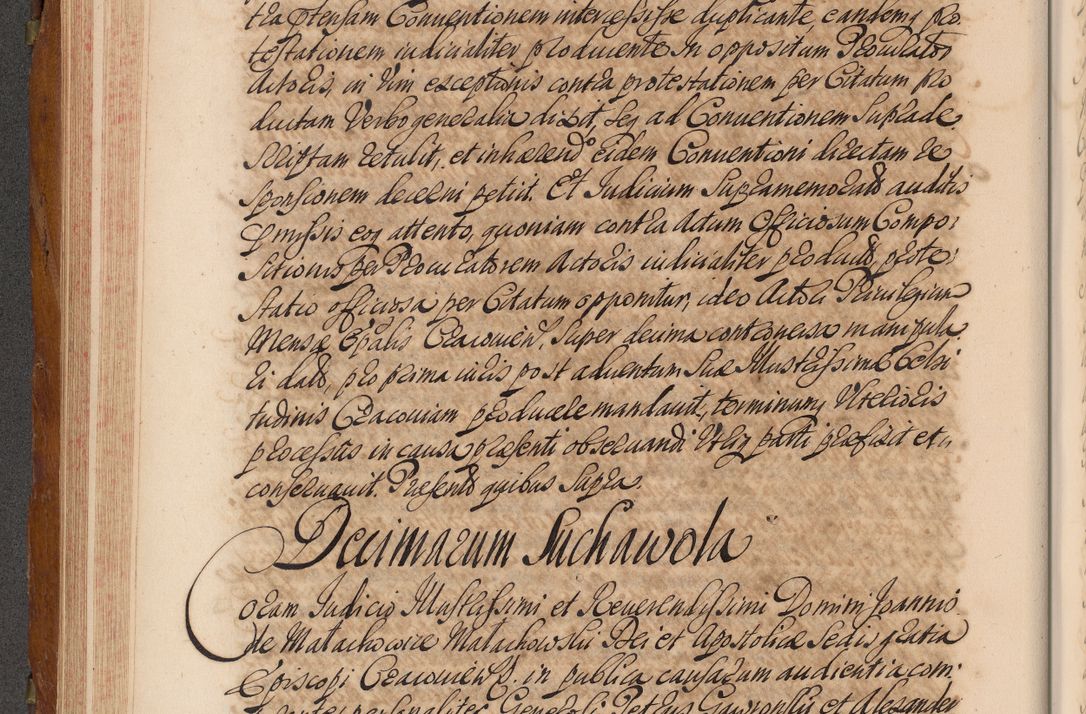 tra ptensam Conventionem intercessisse duplicante eandemq pro
testationem iudicialiter producente. In oppositum Procurator
Actoris, in vim exceptionis contra protestationem per Citatum pro
ductam Verbo generalia dixit, seq ad Conventionem Suprade
scriptam retulit, et inhærend eidem Conventioni directam re
sponsionem decerni petiit. Et Iudicium Supramemorat auditis
pmissis eoq attento, quoniam contra Actum Officiosum Compo:
sitionis per Procuratorem Actoris iudicialiter product, prote
statio officiosa per Citatum opponitur, ideo Actori Privilegium
Mensæ Epalis Cracovien, Super decima controversa manipula
ri dat, pro prima iuris post adventum Suæ Illustrissimæ Celsi
tudinis Cracoviam producere mandavit, terminumq Ulterioris
processus in causa præsenti observandi Utriq parti præfixit et
conservavit. Præsent quibus Supra.
Decimarum Suchawola
Coram Iudicio Illustrissimi et Reverendissimi Domini Joannis
de Małachowice Małachowski Dei et Apostolicæ Sedis gratia
Episcopi Cracovien. in publica causarum audientia com:
personaliter Generosi Petrus Gawronski et Alexander